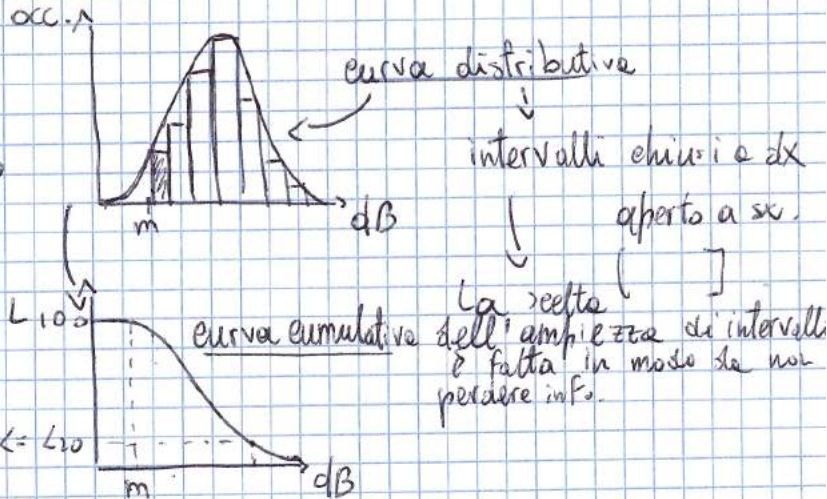 occ.
curva distributiva
intervalli chiusi a dx
aperto a sx.
( ]
m
dB
L 100
curva cumulativa
La scelta
dell'ampiezza di intervalli
è fatta in modo da non
perdere info.
L20
m
dB